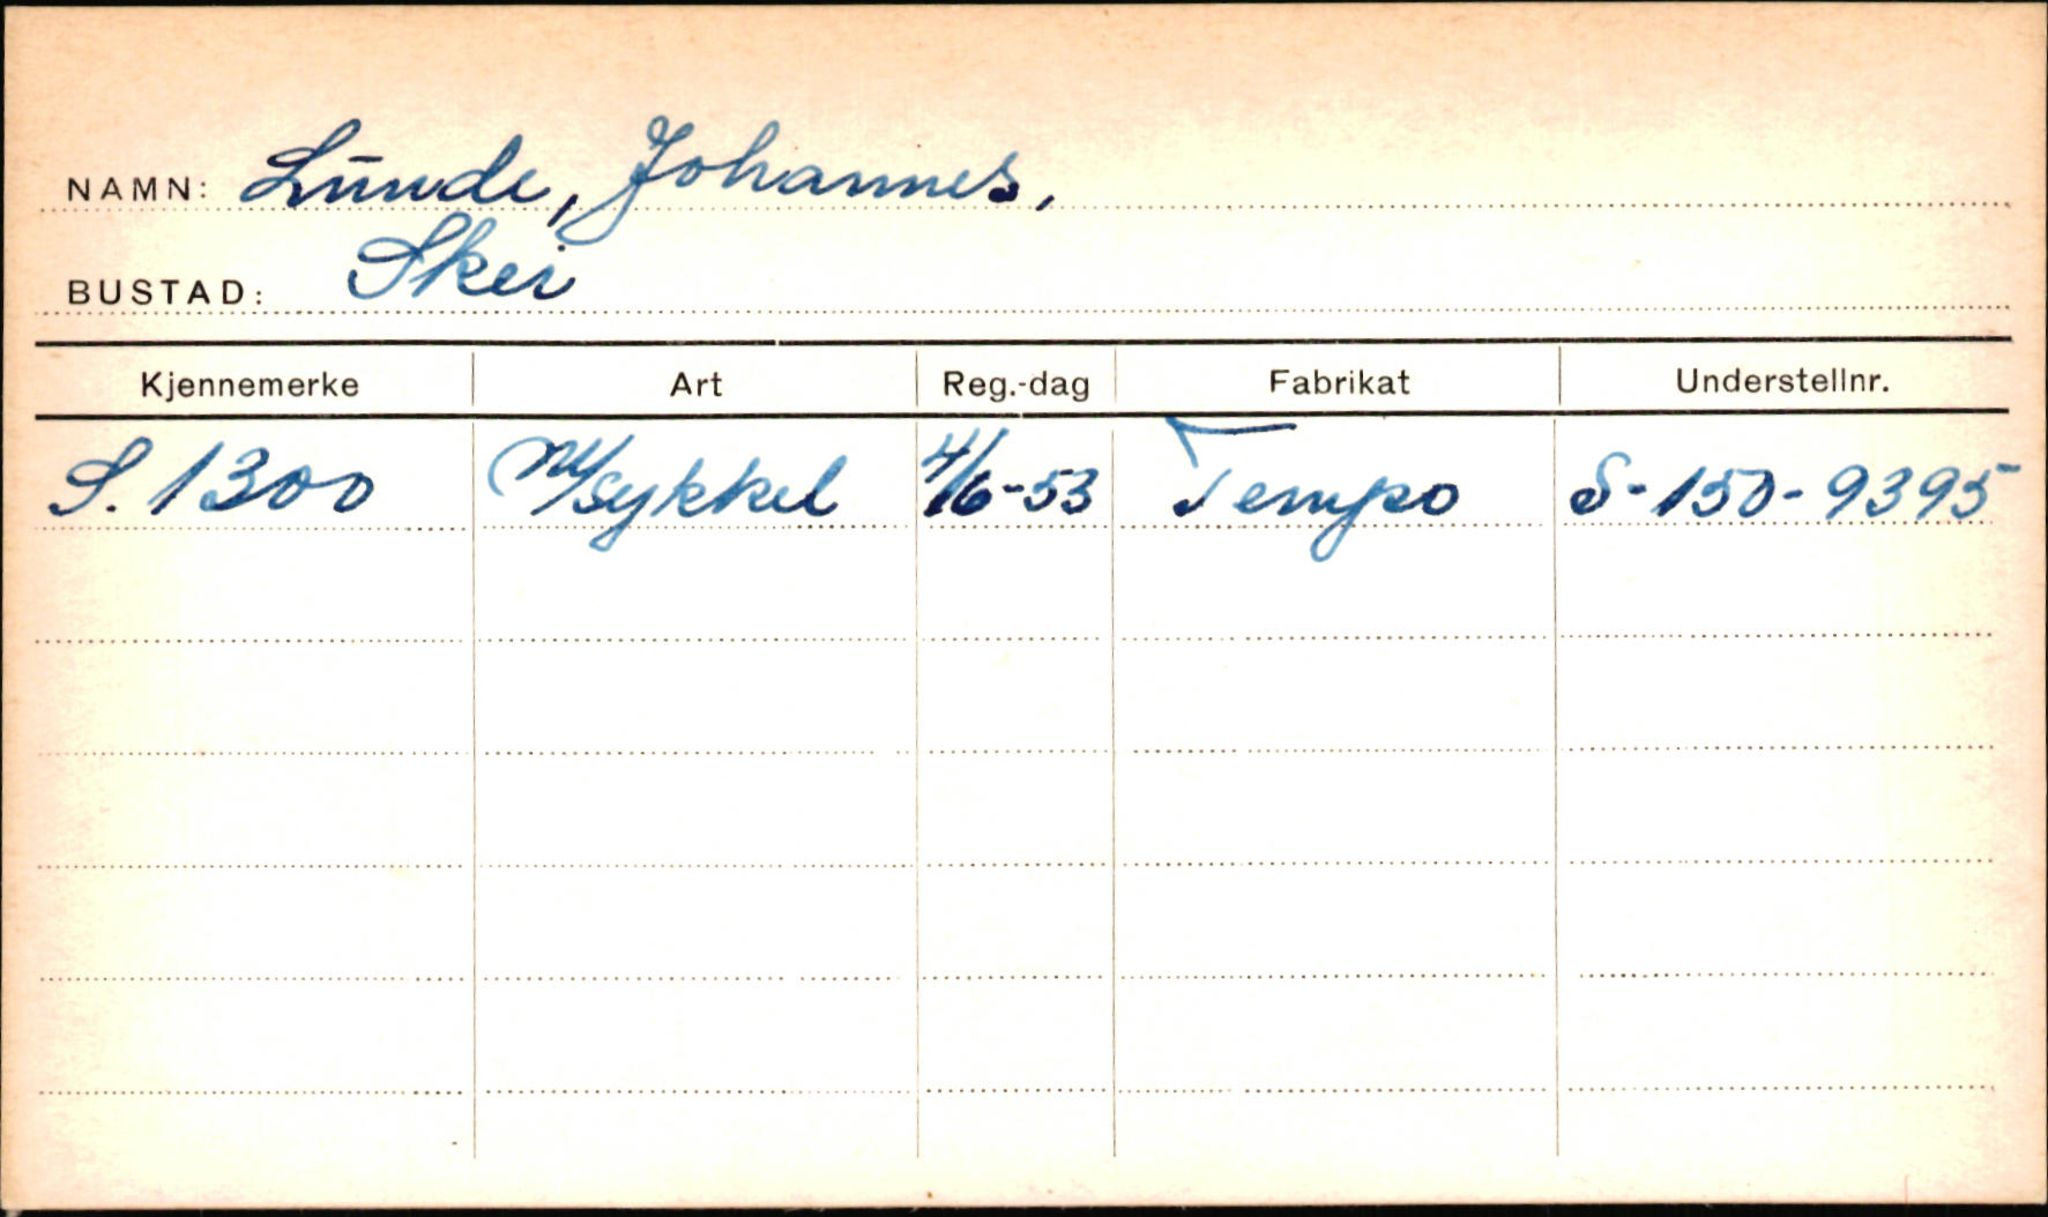 NAMN: Lunde, Johannes,
BUSTAD: Skei
Kjennemerke Art Reg.-dag Fabrikat Understellnr.
S. 1300 M/sykkel 4/6-53 Tempo S-150-9395